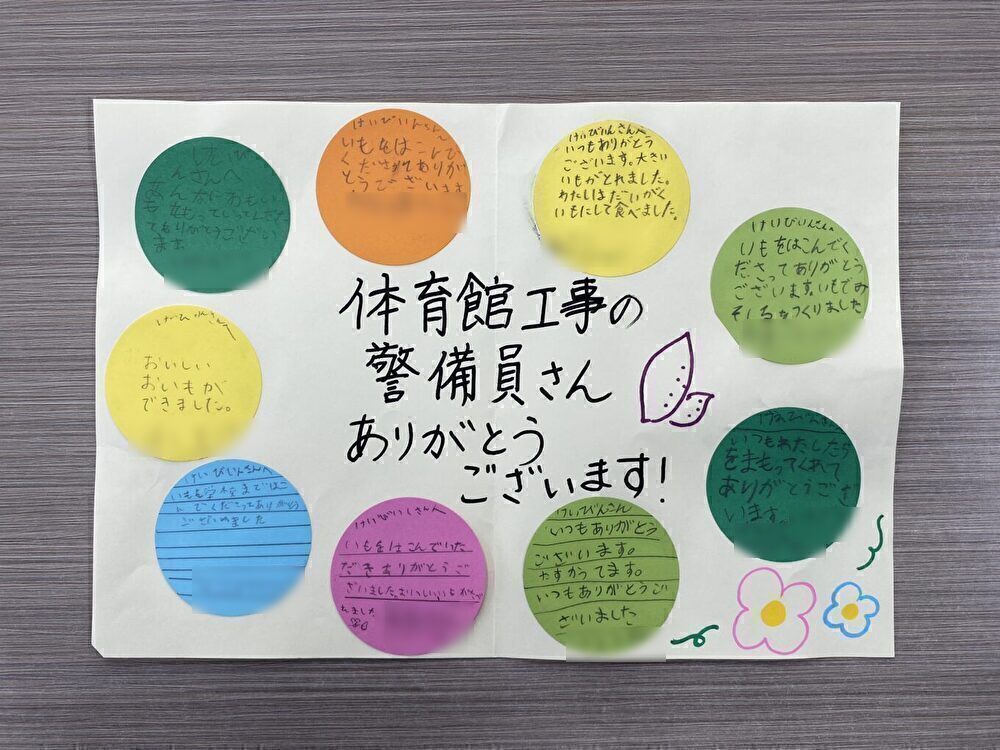 体育館工事の
警備員さん
ありがとう
ございます!
けいび
んさんへ
おもい
てありがとうござい
ます
けいびいんさんへ
いもをはこんで
くださってありが
とうございます。
けいびいんさんへ
いつもありがとう
ございます。大きい
いもがとれました。
わたしはだいがく
いもにして食べました。
けいびいんさんへ
いもをはこんでく
ださってありがとう
ございます。いもでみ
そしるをつくりました
さんへ
おいしい
おいもが
できました。
いつもわたしたち
をまもってくれて
ありがとうござ
います。
けいびいんさんへ
いもを学校まではこ
んでくださってありがとう
ございました
けいびいんさんへ
いもをはこんでいた
だきありがとうご
ざいました。
けいびいん
いつもありがとう
ございます。
たすかってます。
いつもありがとうご
ざいました